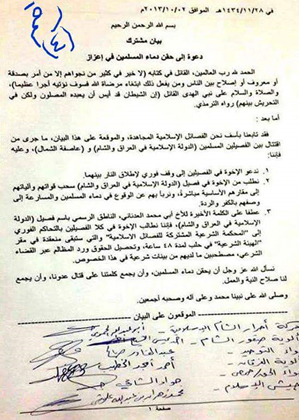 في ٢٨/ ١١ /١٤٣٤هـ الموافق ٢٠١٣/١٠/٠٢م
بسم الله الرحمن الرحيم
بيان مشترك
دعوة إلى حقن دماء المسلمين في إعزاز
الحمد لله رب العالمين، القائل في كتابه (لا خير في كثير من نجواهم إلا من أمر بصدقة
أو معروف أو إصلاح بين الناس ومن يفعل ذلك ابتغاء مرضاة الله فسوف نؤتيه أجرا عظيما)،
والصلاة والسلام على نبي الهدى القائل (إن الشيطان قد أيس أن يعبده المصلون ولكن في
التحريش بينهم) رواه الترمذي.
أما بعد :
فقد تابعنا بأسف نحن الفصائل الإسلامية المجاهدة، والموقعة على هذا البيان، ما جرى من
اقتتال بين الفصيلين المسلمين (الدولة الإسلامية في العراق والشام) و (عاصفة الشمال)، وعليه
فإننا :
١. ندعو الإخوة في الفصيلين إلى وقف فوري لإطلاق النار بينهما.
٢. نطلب من الإخوة في فصيل (الدولة الإسلامية في العراق والشام) سحب قواتهم وآلياتهم
إلى مقارهم الأساسية مباشرة، ونربأ بهم عن الوقوع في دماء المسلمين والمسارعة إلى
وصفهم بالكفر والردة.
٣. عطفا على الكلمة الأخيرة للأخ أبي محمد العدناني، الناطق الرسمي باسم فصيل (الدولة
الإسلامية في العراق والشام)، فإننا نطالب الإخوة في كلا الفصيلين بالتحاكم الفوري
إلى "المحكمة الشرعية المشتركة للفصائل الإسلامية" والتي ستبقى منعقدة في مقر
"الهيئة الشرعية" في حلب لمدة ٤٨ ساعة، وتحصيل الحقوق ورد المظالم عبر القضاء
الشرعي، مصطحبين ما لديهم من بينات شرعية في هذا الخصوص.
نسأل الله عز وجل أن يحقن دماء المسلمين، وأن يجمع كلمتنا على قتال عدونا، وأن يجمع
لنا صلاح النية والعمل.
وصلى الله على نبينا محمد وعلى آله وصحبه أجمعين.
الموقعون على البيان
حركة أحرار الشام الإسلامية
ألوية صقور الشام
لواء التوحيد
ألوية الفرقان
جيش الإسلام
صفحة ١